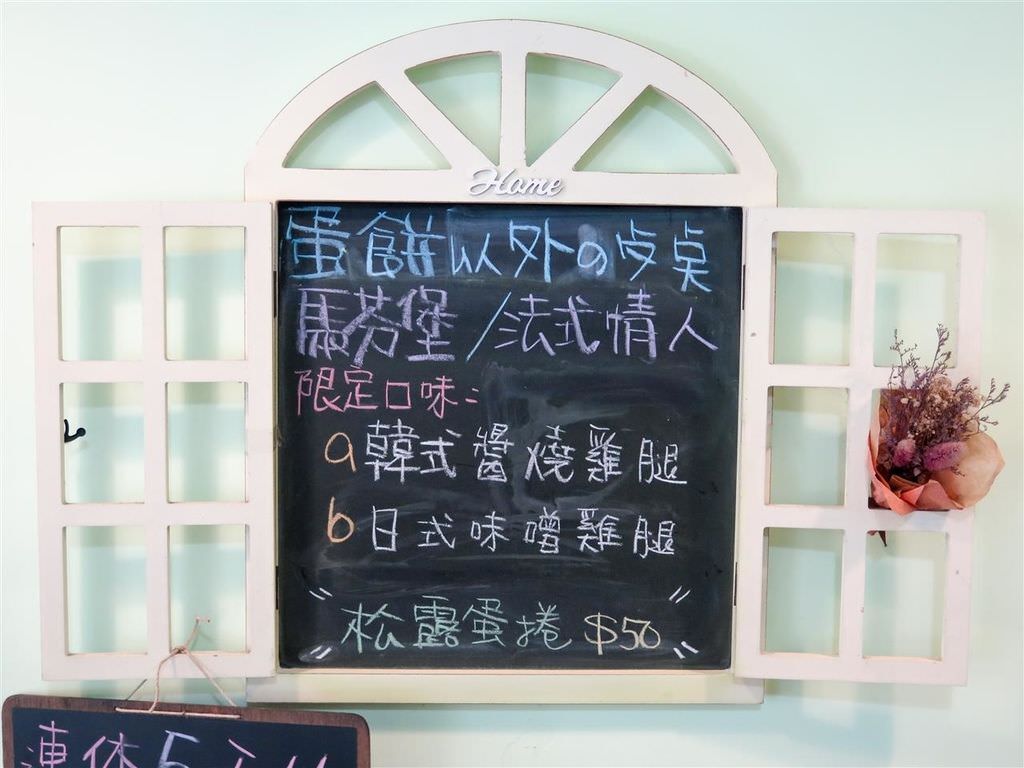 Home
蛋餅以外の点点
馬芬堡/法式情人
限定口味:
a 韓式醬燒雞腿
b 日式味噌雞腿
〃松露蛋捲 $50〃
連休5